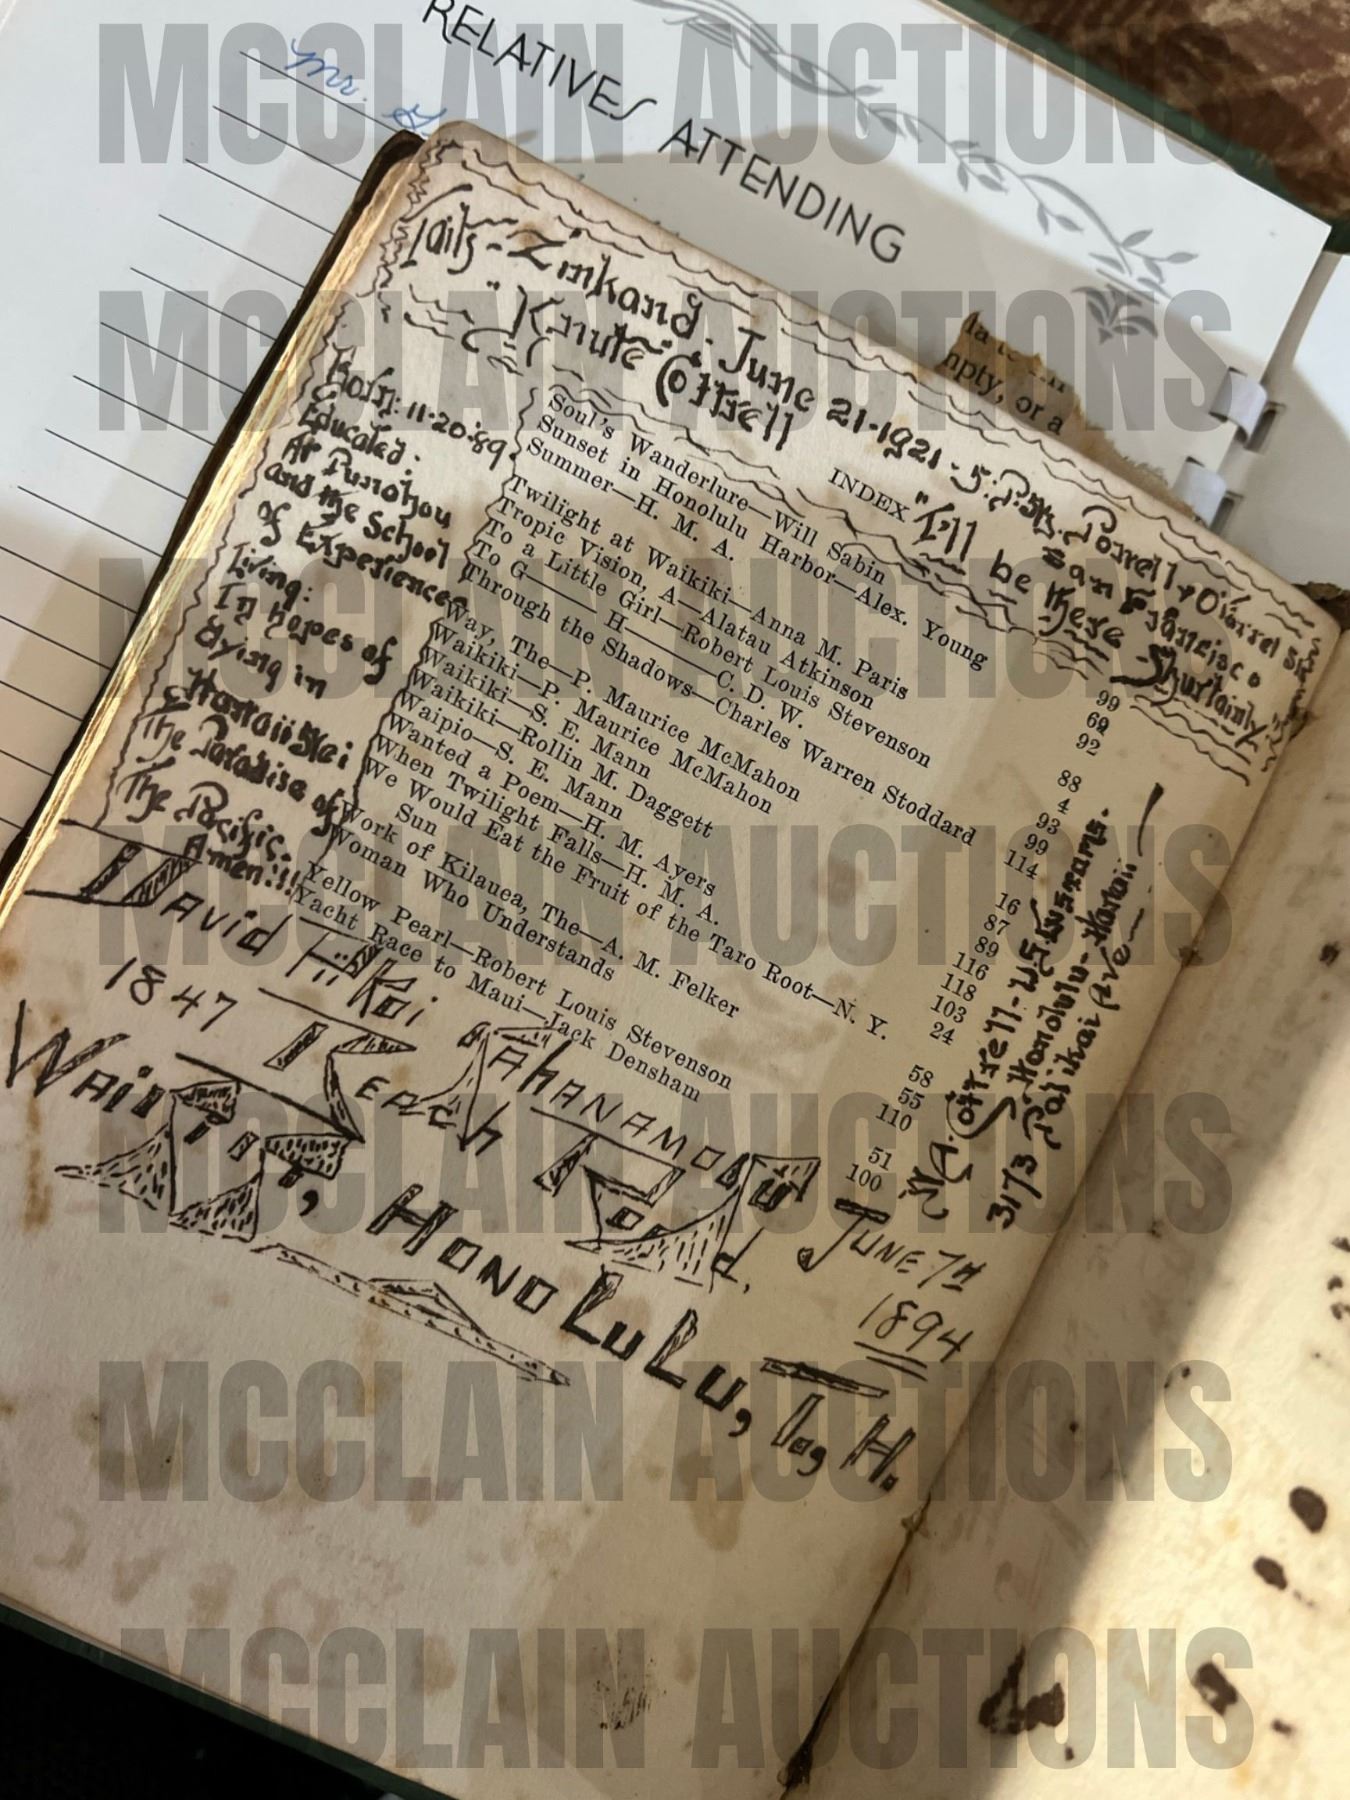 RELATIVES ATTENDING
Mr.
npty, or a
Taits-Zinkand. June 21-1921. 5. P.M. Powell &
San Francisco
" Knute Cottrell "I'll be there Shurtainly"
Born: 11-20-89.
Educated:
At Punohou
and the School
of Experience.
Living:
In hopes of
dying in
Hawaii Nei
The Paradise of
The Pacific.
Amen!!!
INDEX
Soul's Wanderlure—Will Sabin 99
Sunset in Honolulu Harbor—Alex. Young 69
Summer—H. M. A. 92
Twilight at Waikiki—Anna M. Paris 88
Tropic Vision, A—Alatau Atkinson 4
To a Little Girl—Robert Louis Stevenson 93
To G—— H——C. D. W. 99
Through the Shadows—Charles Warren Stoddard 114
Way, The—P. Maurice McMahon 16
Waikiki—P. Maurice McMahon 87
Waikiki—S. E. Mann 89
Waikiki—Rollin M. Daggett 116
Waipio—S. E. Mann 118
Wanted a Poem—H. M. Ayers 103
When Twilight Falls—H. M. A. 24
We Would Eat the Fruit of the Taro Root—N. Y.
Sun 58
Work of Kilauea, The—A. M. Felker 55
Woman Who Understands 110
Yellow Pearl—Robert Louis Stevenson 51
Yacht Race to Maui—Jack Densham 100
Cottrell-
Honolulu-Hawaii
3173 Palikai Ave—
David
1847 Kahanamoku June 7th
1894
Beach Road.
Honolulu, H.
MCCLAIN AUCTIONS
MCCLAIN AUCTIONS
MCCLAIN AUCTIONS
MCCLAIN AUCTIONS
MCCLAIN AUCTIONS
MCCLAIN AUCTIONS
MCCLAIN AUCTIONS